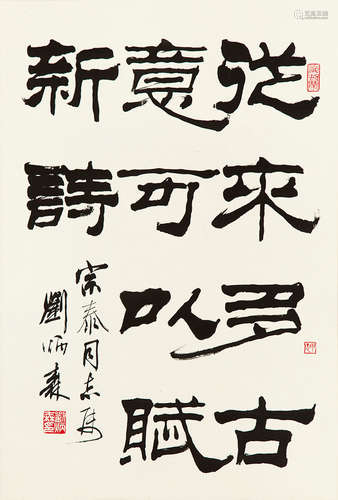 從來多古
意可以賦
新詩
宗泰同志屬
劉炳森